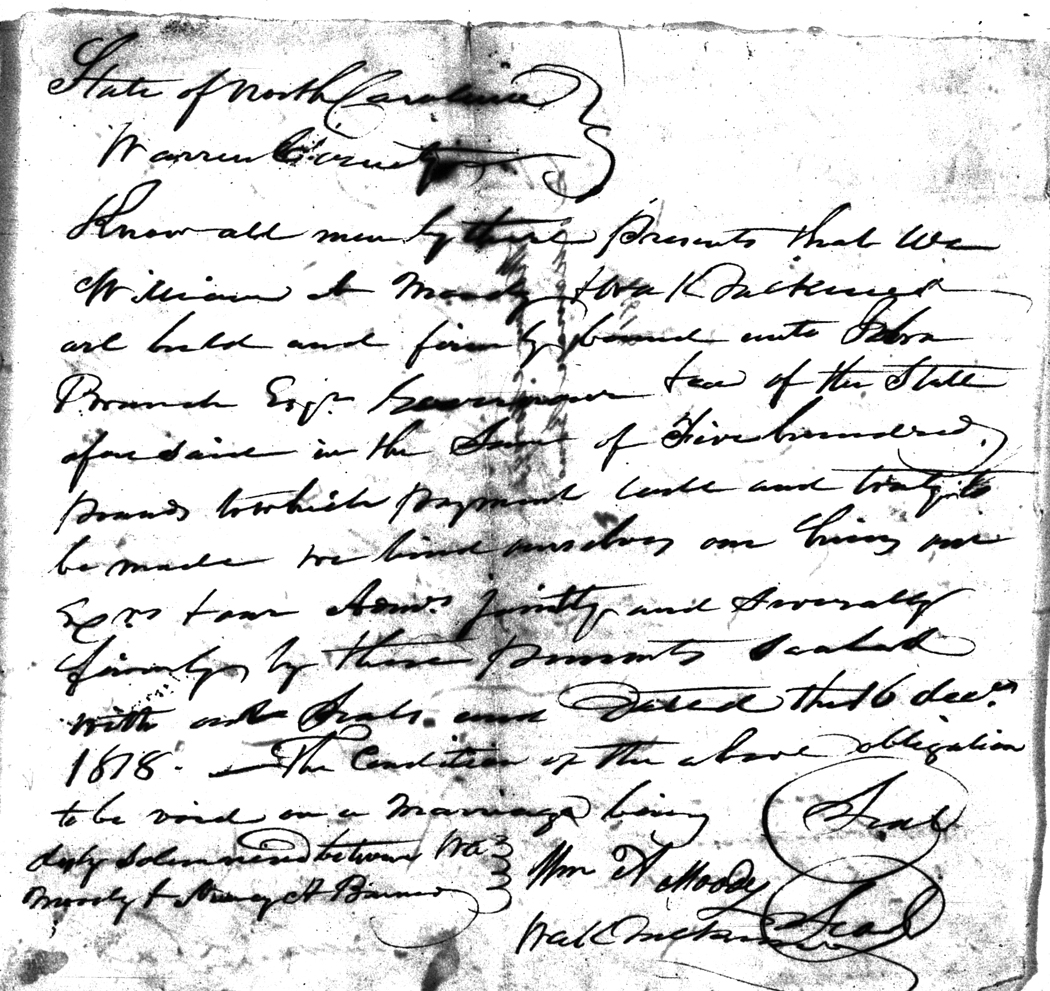 State of North Carolina
Warren County
Know all men by these Presents that We
William A Moody & Wa K
are held and firmly bound unto John
Branch Esqr. Governour &ca of the State
afore said in the Sum of Five hundred
pounds to which payment well and truly to
be made we bind ourselves our heirs our
Exrs & our Adms. jointly and Severally
firmly by these presents sealed
with our Seals and Dated the 16 decr.
1818. The Condition of the above obligation
to be void on a Marriage being
duly solemnized between Wm
Moody & Nancy A
Seal
Wm A Moody
Seal
Wa K